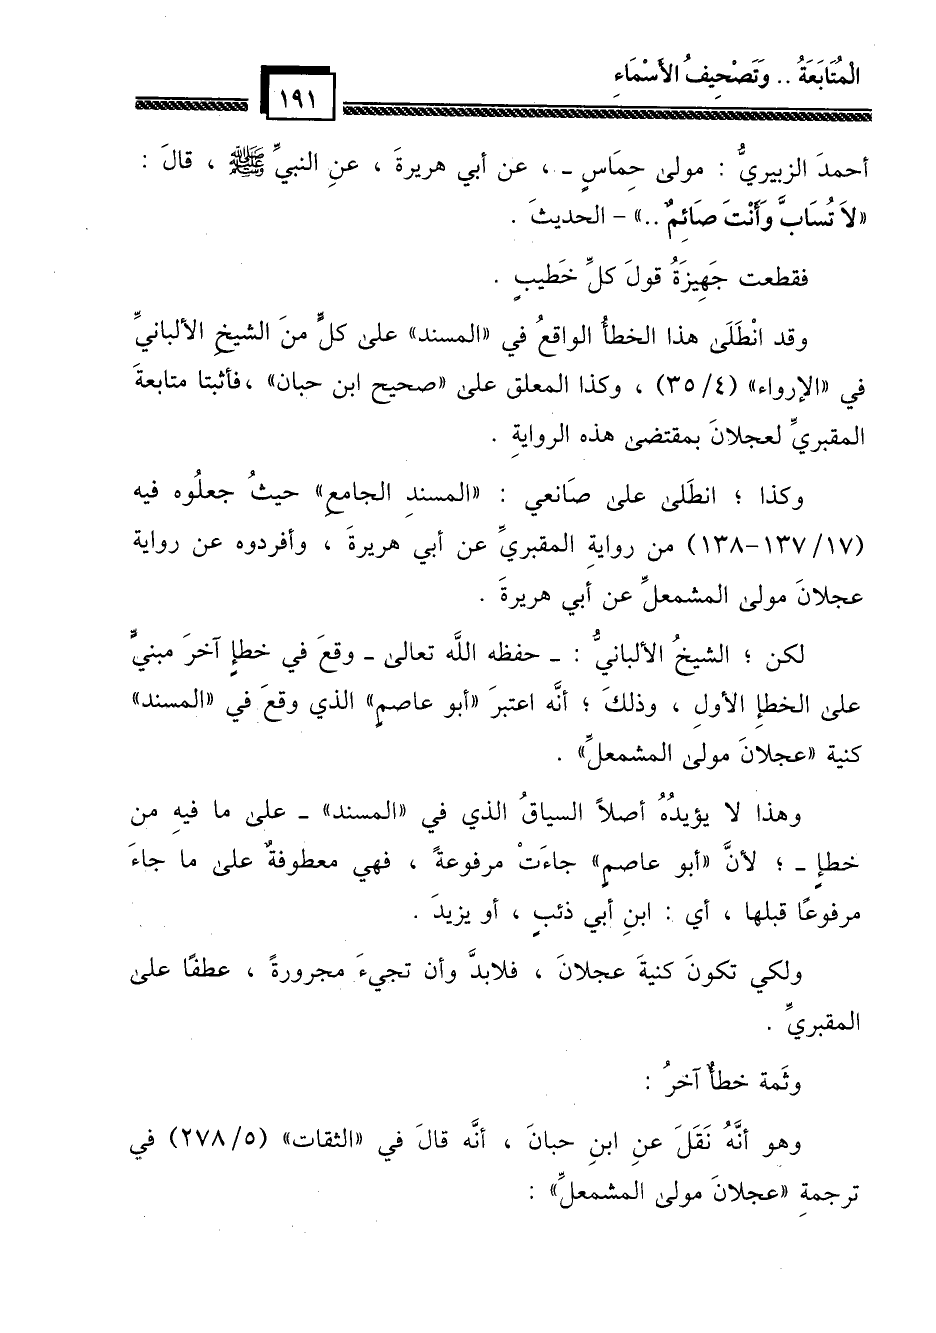 الْمُتَابَعَةُ .. وَتَصْحِيفُ الأَسْمَاءِ
١٩١
أحمدَ الزبيريُّ : مولى حِمَاسٍ ـ ، عن أبي هريرةَ ، عنِ النبيِّ ﷺ ، قالَ :
«لاَ تُسَابَّ وَأَنْتَ صَائِمٌ ..» – الحديثَ .
فقطعت جَهِيزَةُ قولَ كلِّ خَطيبٍ .
وقد انْطَلَى هذا الخطأُ الواقعُ في «المسند» على كلٍّ منَ الشيخِ الألبانيِّ
في «الإرواء» (٣٥/٤) ، وكذا المعلق على «صحيح ابن حبان» ، فأثبتا متابعةَ
المقبريِّ لعجلانَ بمقتضى هذه الروايةِ .
وكذا ؛ انطَلى على صَانعي : «المسندِ الجامعِ» حيثُ جعلُوه فيه
(١٣٧/١٧–١٣٨) من روايةِ المقبريِّ عن أبي هريرةَ ، وأفردوه عن رواية
عجلانَ مولى المشمعلِّ عن أبي هريرةَ .
لكن ؛ الشيخُ الألبانيُّ : ـ حفظه اللَّه تعالى ـ وقعَ في خطإٍ آخرَ مبنيٍّ
على الخطإِ الأولِ ، وذلكَ ؛ أنَّه اعتبرَ «أبو عاصمٍ» الذي وقعَ في «المسند»
كنية «عجلانَ مولى المشمعلِّ» .
وهذا لا يؤيدُهُ أصلاً السياقُ الذي في «المسند» ـ على ما فيهِ من
خطإٍ ـ ؛ لأنَّ «أبو عاصمٍ» جاءَتْ مرفوعةً ، فهي معطوفةٌ على ما جاءَ
مرفوعًا قبلها ، أي : ابنِ أبي ذئبٍ ، أو يزيدَ .
ولكي تكونَ كنيةَ عجلانَ ، فلابدَّ وأن تجيءَ مجرورةً ، عطفًا على
المقبريِّ .
وثَمة خطأٌ آخرُ :
وهو أنَّهُ نَقَلَ عنِ ابنِ حبانَ ، أنَّه قالَ في «الثقات» (٢٧٨/٥) في
ترجمةِ «عجلانَ مولى المشمعلِّ» :